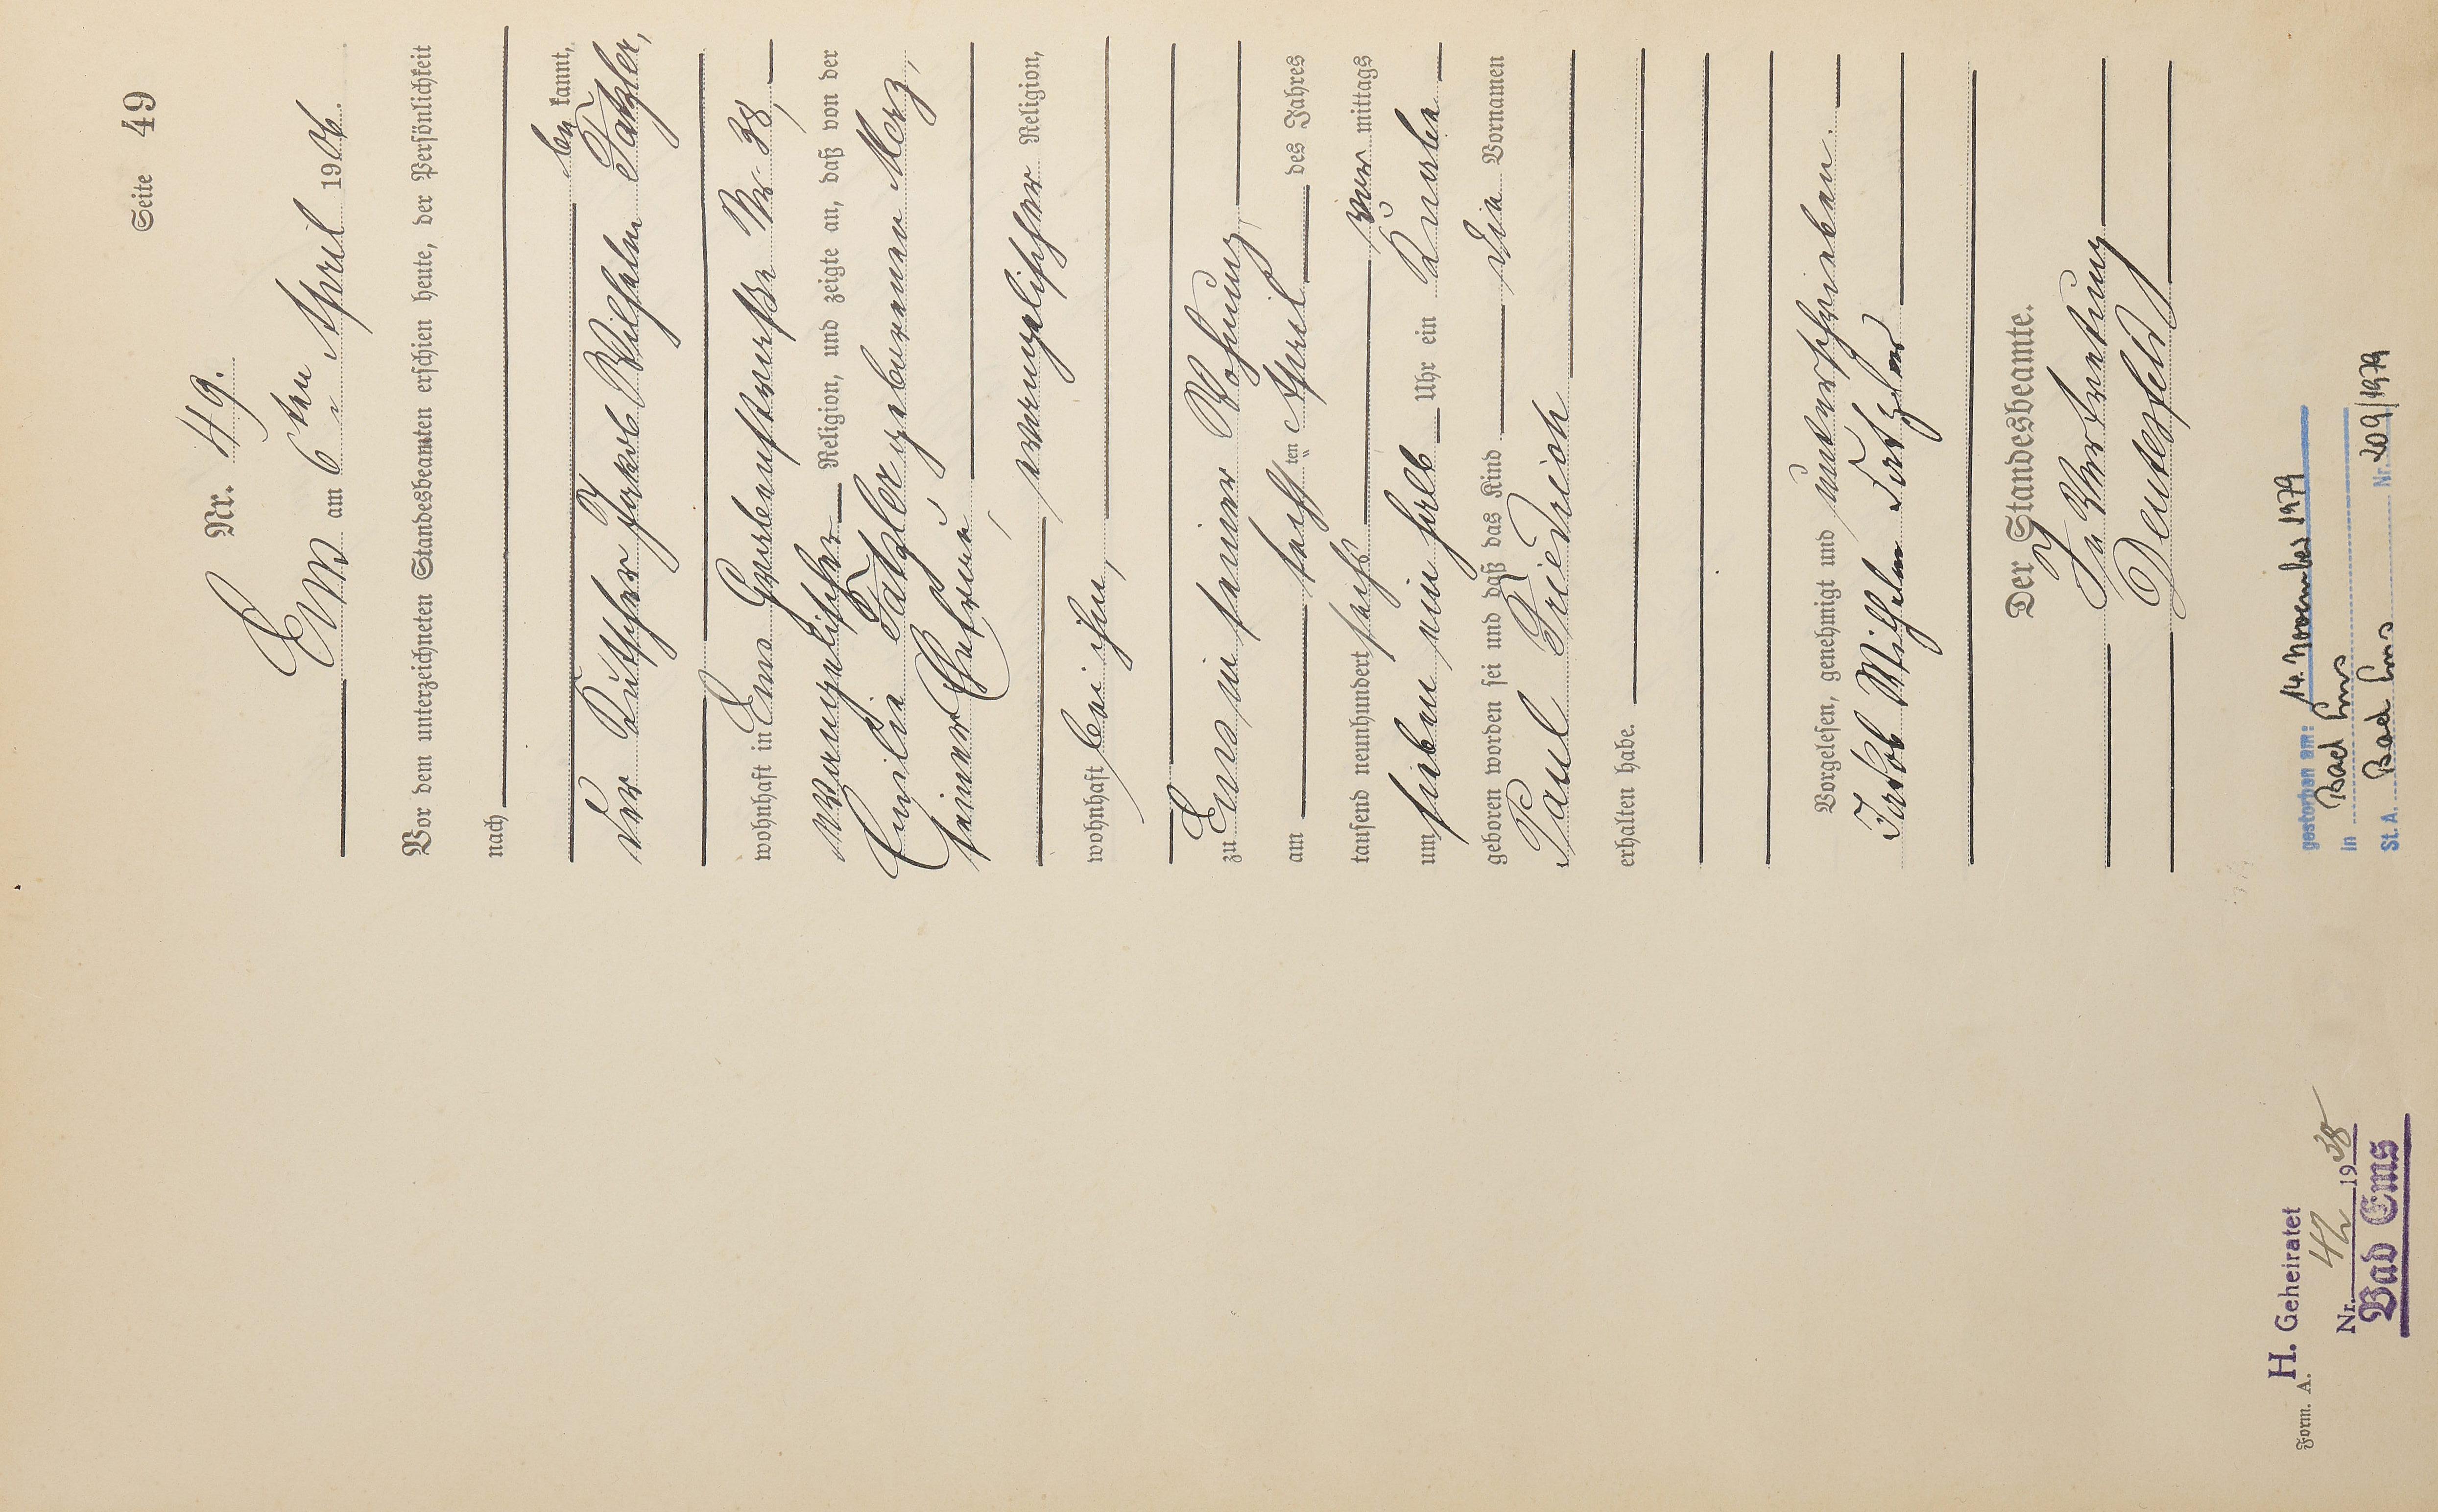 Seite 49
Nr. 49.
Ems am 6ten April 1906.
Vor dem unterzeichneten Standesbeamten erschien heute, der Persönlichkeit
nach
be kannt,
der Kutscher Jakob Wilhelm Tatzler,
wohnhaft in Ems Grabenstraße Nr. 38,
evangelischer Religion, und zeigte an, daß von der
Emilie Tatzler geborenen Merz,
seiner Ehefrau,
evangelischer Religion,
wohnhaft bei ihm,
zu Ems in seiner Wohnung
am fünften April des Jahres
tausend neunhundert sechs vor mittags
um sieben ein halb Uhr ein Knabe
geboren worden sei und daß das Kind die Vornamen
Paul Friedrich
erhalten habe.
Vorgelesen, genehmigt und unterschrieben.
Jakob Wilhelm Tatzler
Der Standesbeamte.
In Vertretung
Deutesfeld
Form. A.
H. Geheiratet
Nr. 42 1938
Bad Ems
gestorben am: 14. November 1979
in Bad Ems
St. A. Bad Ems Nr. 209/1979